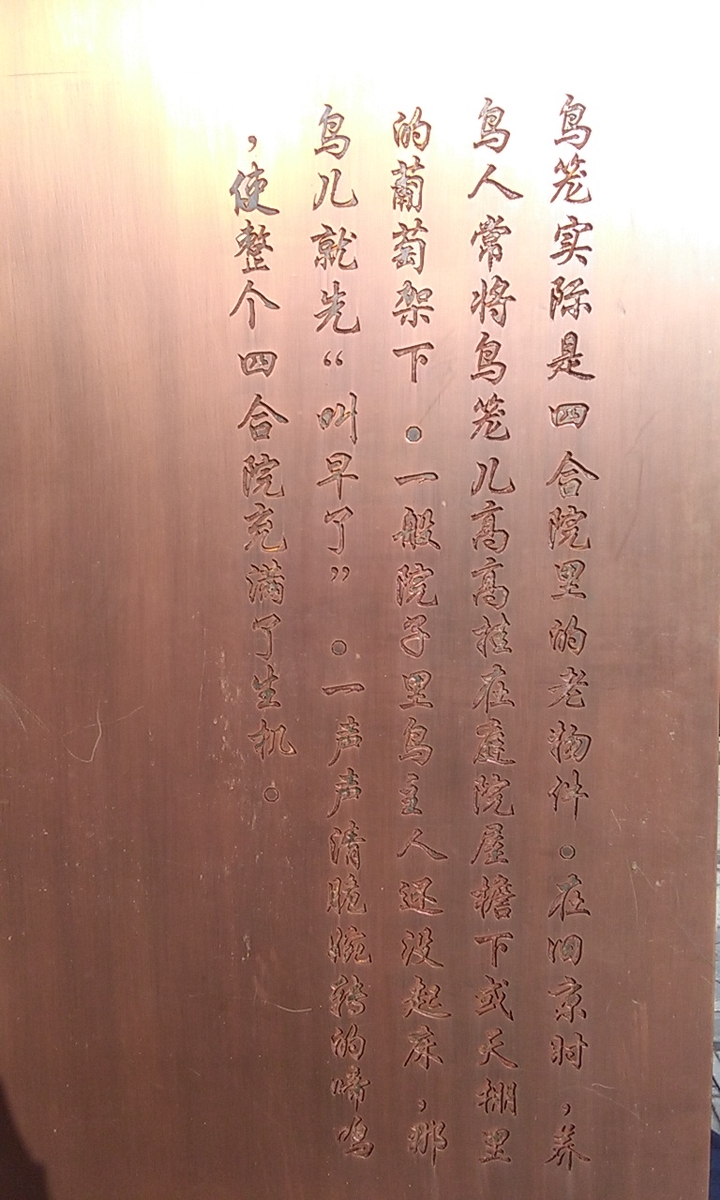 鸟笼实际是四合院里的老物件。在旧京时，养
鸟人常将鸟笼儿高高挂在庭院屋檐下或天棚里
的葡萄架下。一般院子里鸟主人还没起床，那
鸟儿就先“叫早了”。一声声清脆婉转的啼鸣
，使整个四合院充满了生机。